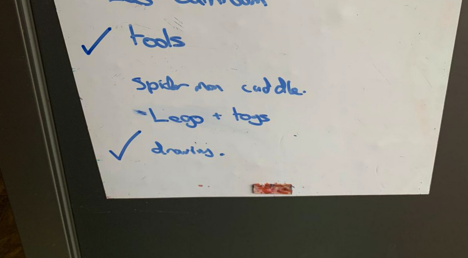 ✓ tools
spider man cuddle.
- Lego + toys
✓ drawing.